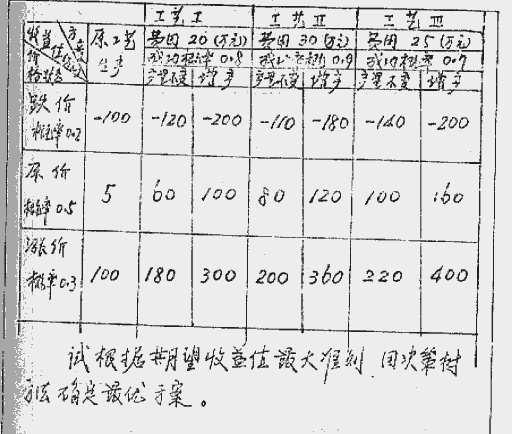 工艺 I 工艺 II 工艺 III
收益值 方案 原工艺 费用 20 (万元) 费用 30 (万元) 费用 25 (万元)
价格状态 生产 成功概率 0.8 成功概率 0.9 成功概率 0.7
产量不变 增产 产量不变 增产 产量不变 增产
跌价 概率 0.2 -100 -120 -200 -110 -180 -140 -200
原价 概率 0.5 5 60 100 80 120 100 160
涨价 概率 0.3 100 180 300 200 360 220 400
试根据期望收益值最大准则 用决策树
方法确定最优方案。